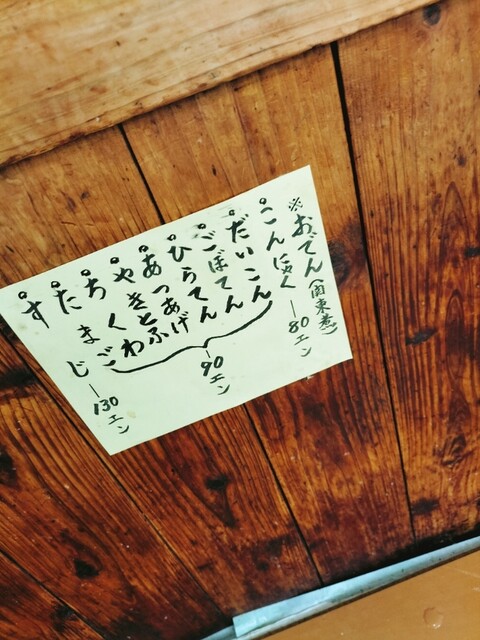 ※おでん(関東煮)
。こんにゃく―80エン
。だいこん
。ごぼてん
。ひらてん
。あつあげ
。やきとふ
。ちくわ
。たまご
90エン
。すじ―130エン